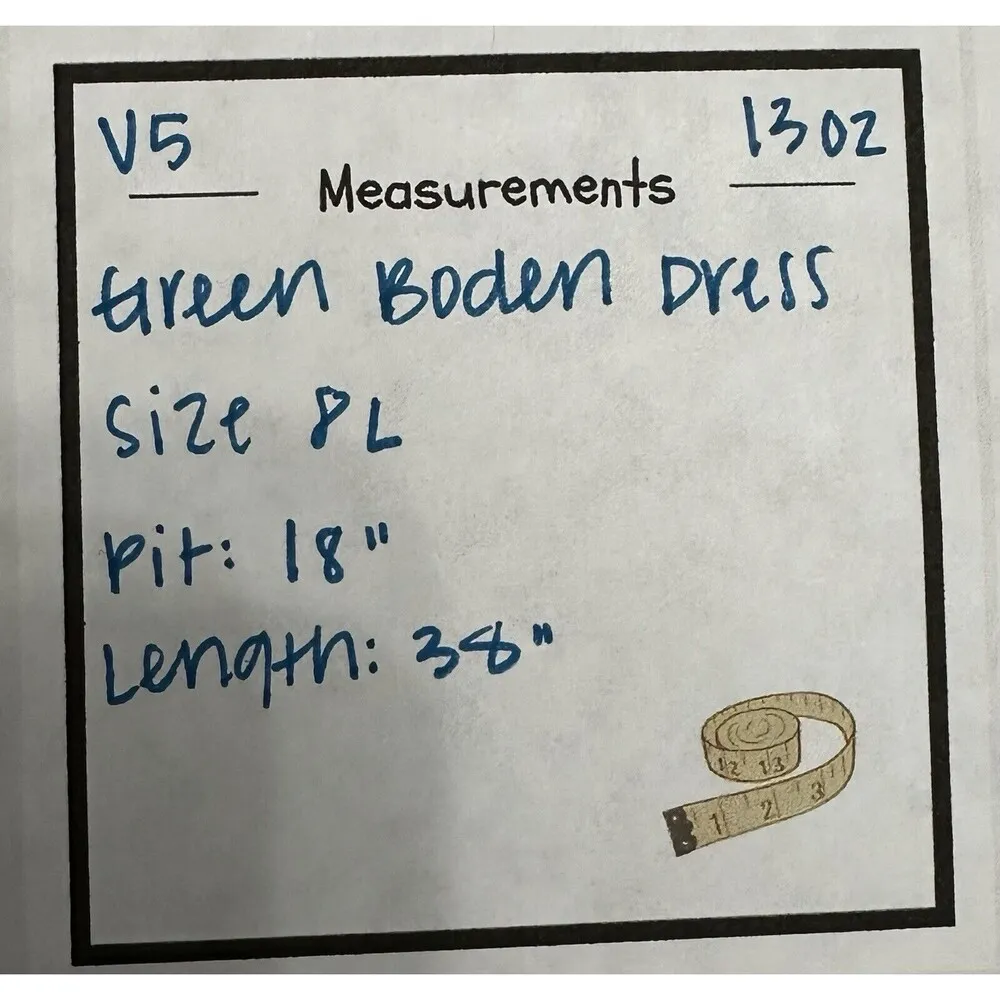 V5 13oz
Measurements
Green Boden Dress
Size 8L
Pit: 18"
Length: 38"
12 13
1 2 3